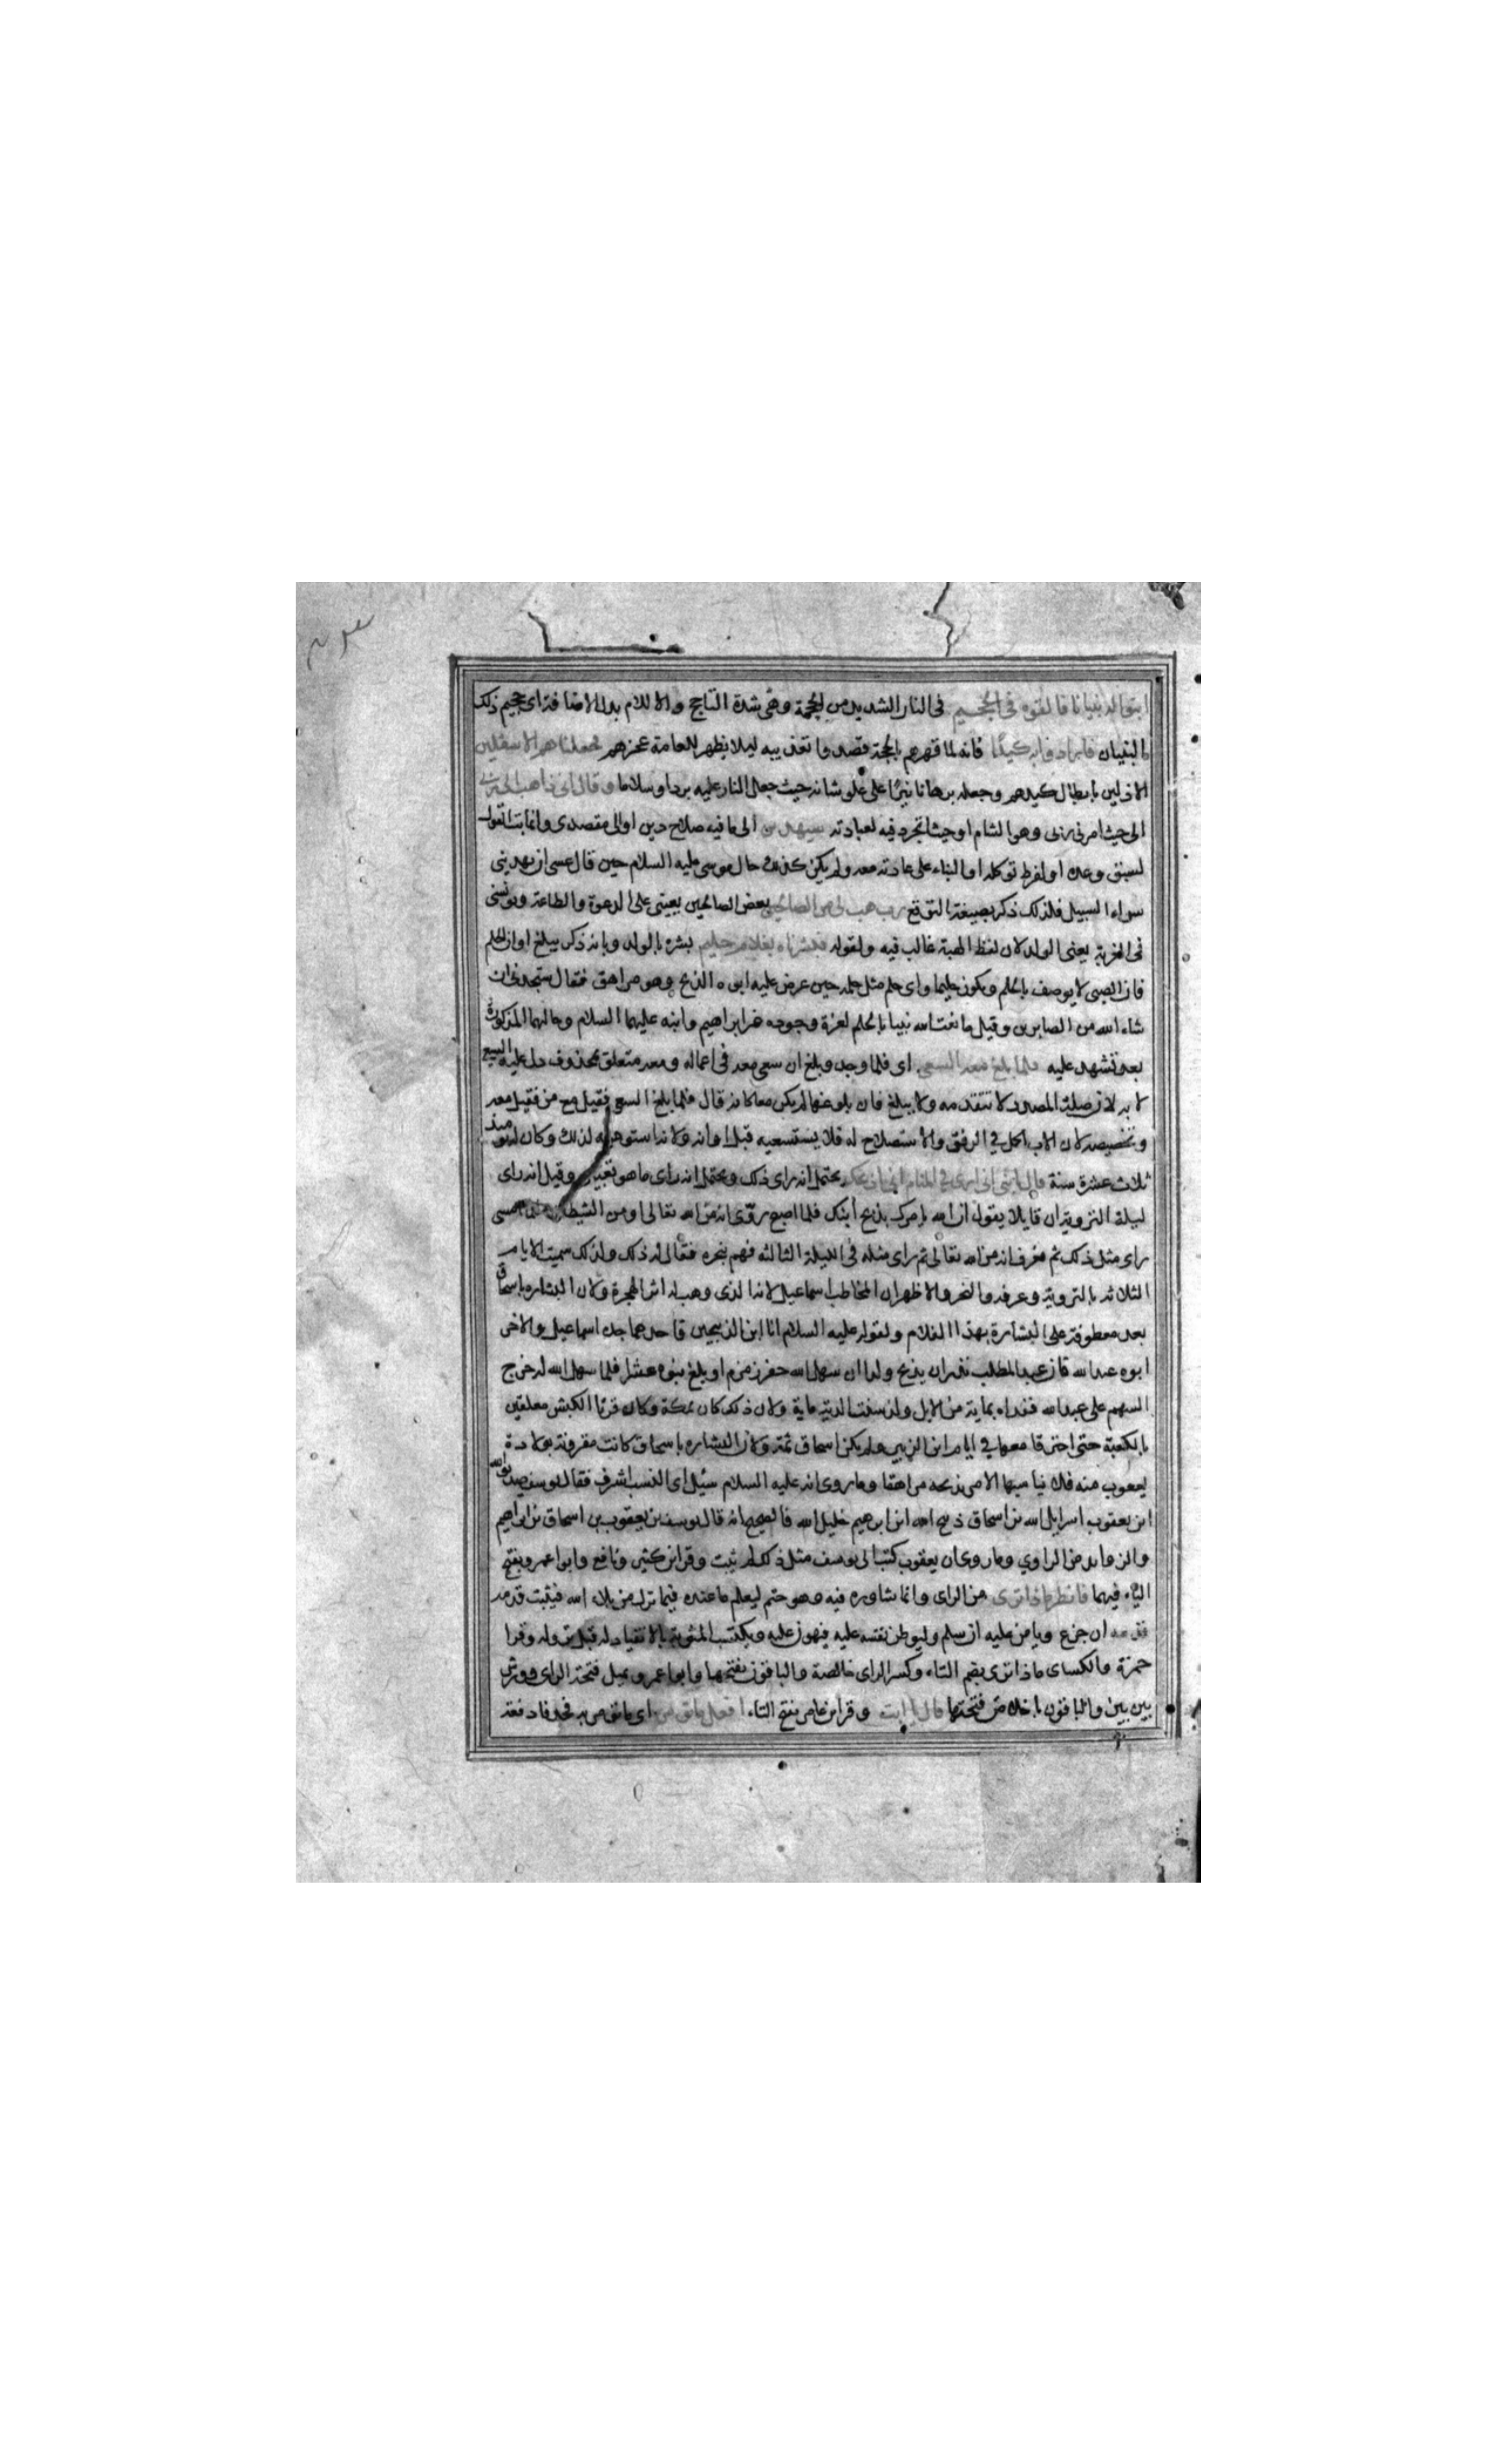 ابنوا له بنيانا فالقوه في الجحيم في النار الشديد من الجحمة وهى شدة التاجج والا للام بدل الاضافة اى جحيم ذلك
البنيان فارادوا به كيدا فانه لما قهرهم بالحجة قصدوا تعذيبه ليلا يظهر للعامة عجزهم فجعلناهم الاسفلين
الاذلين بابطال كيدهم وجعله برهانا نيرا على علو شانه حيث جعل النار عليه بردا وسلاما وقال انى ذاهب الى ربى
الى حيث امرنى ربى وهو الشام او حيث اتجرد فيه لعبادته سيهدين الى ما فيه صلاح دينى او الى مقصدى وانما بت القول
لسبق وعده او لفرط توكله او البناء على عادته معه ولم يكن كذلك حال موسى عليه السلام حين قال عسى ان يهدينى
سواء السبيل فلذلك ذكر بصيغة التوقع رب هب لى من الصالحين بعض الصالحين يعيننى على الدعوة والطاعة ويونسنى
فى الغربة يعنى الولد لان لفظ الهبة غالب فيه ولقوله فبشرناه بغلام حليم بشره بالولد وبانه ذكر يبلغ اوان الحلم
فان الصبى لا يوصف بالحلم ويكون حليما واى حلم مثل حلمه حين عرض عليه ابوه الذبح وهو مراهق فقال ستجدنى ان
شاء الله من الصابرين وقيل ما نعت الله نبيا بالحلم لعزة وجوده غير ابراهيم وابنه عليهما السلام وحالهما المذكورة
بعد تشهد عليه فلما بلغ معه السعى اى فلما وجد وبلغ ان سعى معه فى اعماله ومعه متعلق بمحذوف دل عليه السعى
لا به لان صلة المصدر لا تتقدمه ولا ببلغ فان بلوغهما لم يكن معا كانه قال فلما بلغ السعى فقيل مع من فقيل معه
وتخصيصه لان الاب اكمل في الرفق والاستصلاح له فلا يستسعيه قبل اوانه ولانه استوهبه لذلك وكان له يومئذ
ثلاث عشرة سنة قال يا بنى انى ارى في المنام انى اذبحك يحتمل انه راى ذلك ويحتمل انه راى ما هو تعبيره وقيل انه راى
ليلة التروية ان قايلا يقول ان الله يامرك بذبح ابنك فلما اصبح روى انه من الله تعالى او من الشيطان فلما امسى
راى مثل ذلك ثم فعرف انه من الله تعالى ثم راى مثله فى الليلة الثالثه فهم بنحره فقال له ذلك ولذلك سميت الايام
الثلاثه بالتروية وعرفه والنحر والاظهر ان المخاطب اسماعيل لانه الذى وهب له اثر الهجرة ولان البشاره باسحاق
بعد معطوفة على البشارة بهذا الغلام ولقوله عليه السلام انا ابن الذبيحين فاحدهما جده اسماعيل والاخر
ابوه عبد الله فان عبد المطلب نذر ان يذبح ولدا ان سهل الله حفر زمزم او بلغ بنوه عشرا فلما سهل الله له خرج
السهم على عبد الله ففداه بماية من الابل ولذلك سنت الدية ماية ولان ذلك كان بمكة وكان قرنا الكبش معلقين
بالكعبة حتى احترقا معها في ايام ابن الزبير ولم يكن اسحاق ثمة ولان البشاره باسحاق كانت مقرونة بولادة
يعقوب منه فلا يناسبها الامر بذبحه مراهقا وما روى انه عليه السلام سئل اى النسب اشرف فقال يوسف صديق الله
ابن يعقوب اسرايل الله بن اسحاق ذبيح الله ابن ابرهيم خليل الله فالصحيح انه قال يوسف بن يعقوب بن اسحاق بن ابراهيم
والزوايد من الراوي وما روى ان يعقوب كتب الى يوسف مثل ذلك لم يثبت وقرا ابن كثير ونافع وابوا عمرو بفتح
الياء فيهما فانظر ماذا ترى من الراى وانما شاوره فيه وهو حتم ليعلم ما عنده فيما نزل من بلاء الله فيثبت قدمه
ان جزع ويامن عليه ان سلم وليوطن نفسه عليه فيهون عليه ويكتسب المثوبة بالانقياد له قبل نزوله وقرا
حمزة والكساى ماذا ترى بضم التاء وكسر الراى خالصة والباقون بفتحها وابوا عمرو يميل فتحة الراى وورش
بين بين والباقون باخلاص فتحتها قال يا ابت وقرا ابن عامر بفتح التاء افعل ما تومر اى ما تومر به فحذفا دفعة